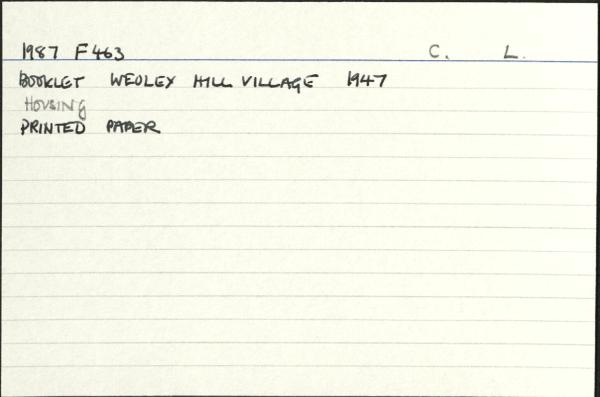 1987 F463 C. L.
BOOKLET WEOLEY HILL VILLAGE 1947
HOUSING
PRINTED PAPER